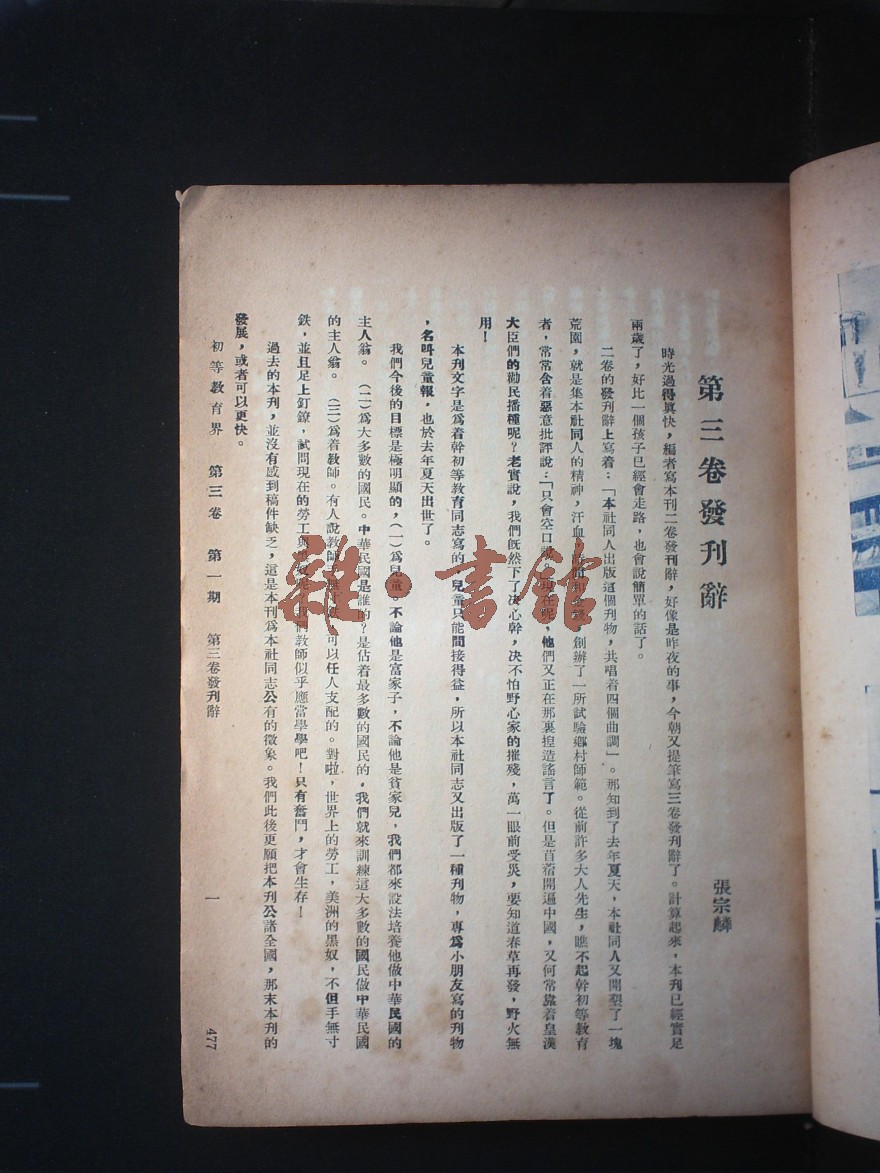 第三卷發刊辭
張宗麟
時光過得眞快，編者寫本刊二卷發刊辭，好像是昨夜的事，今朝又提筆寫三卷發刊辭了。計算起來，本刊已經實足
兩歲了，好比一個孩子已經會走路，也會說簡單的話了。
二卷的發刊辭上寫着：「本社同人出版這個刊物，共唱着四個曲調」。那知到了去年夏天，本社同人又開墾了一塊
荒園，就是集本社同人的精神，汗血，時間和金錢，創辦了一所試驗鄉村師範。從前許多大人先生，瞧不起幹初等敎育
者，常常含着惡意批評說：「只會空口說。現在呢，他們又正在那裏揑造謠言了。但是苜蓿開遍中國，又何常靠着皇漢
大臣們的勸民播種呢？老實說，我們旣然下了決心幹，决不怕野心家的摧殘，萬一眼前受災，要知道春草再發，野火無
用！
本刊文字是爲着幹初等敎育同志寫的，兒童只能間接得益，所以本社同志又出版了一種刊物，專爲小朋友寫的刊物
，名叫兒童報，也於去年夏天出世了。
我們今後的目標是極明顯的，（一）爲兒童。不論他是富家子，不論他是貧家兒，我們都來設法培養他做中華民國的
主人翁。（二）爲大多數的國民。中華民國是誰的？是佔着最多數的國民的，我們就來訓練這大多數的國民做中華民國
的主人翁。（三）爲着敎師。有人說敎師 可以任人支配的。對啦，世界上的勞工，美洲的黑奴，不但手無寸
鉄，並且足上釘鐐，試問現在的勞工與黑奴呢，我們敎師似乎應當學學吧！只有奮鬥，才會生存！
過去的本刊，並沒有感到稿件缺乏，這是本刊爲本社同志公有的徵象。我們此後更願把本刊公諸全國，那末本刊的
發展，或者可以更快。
初等敎育界 第三卷 第一期 第三卷發刊辭 一
477
雜·書館